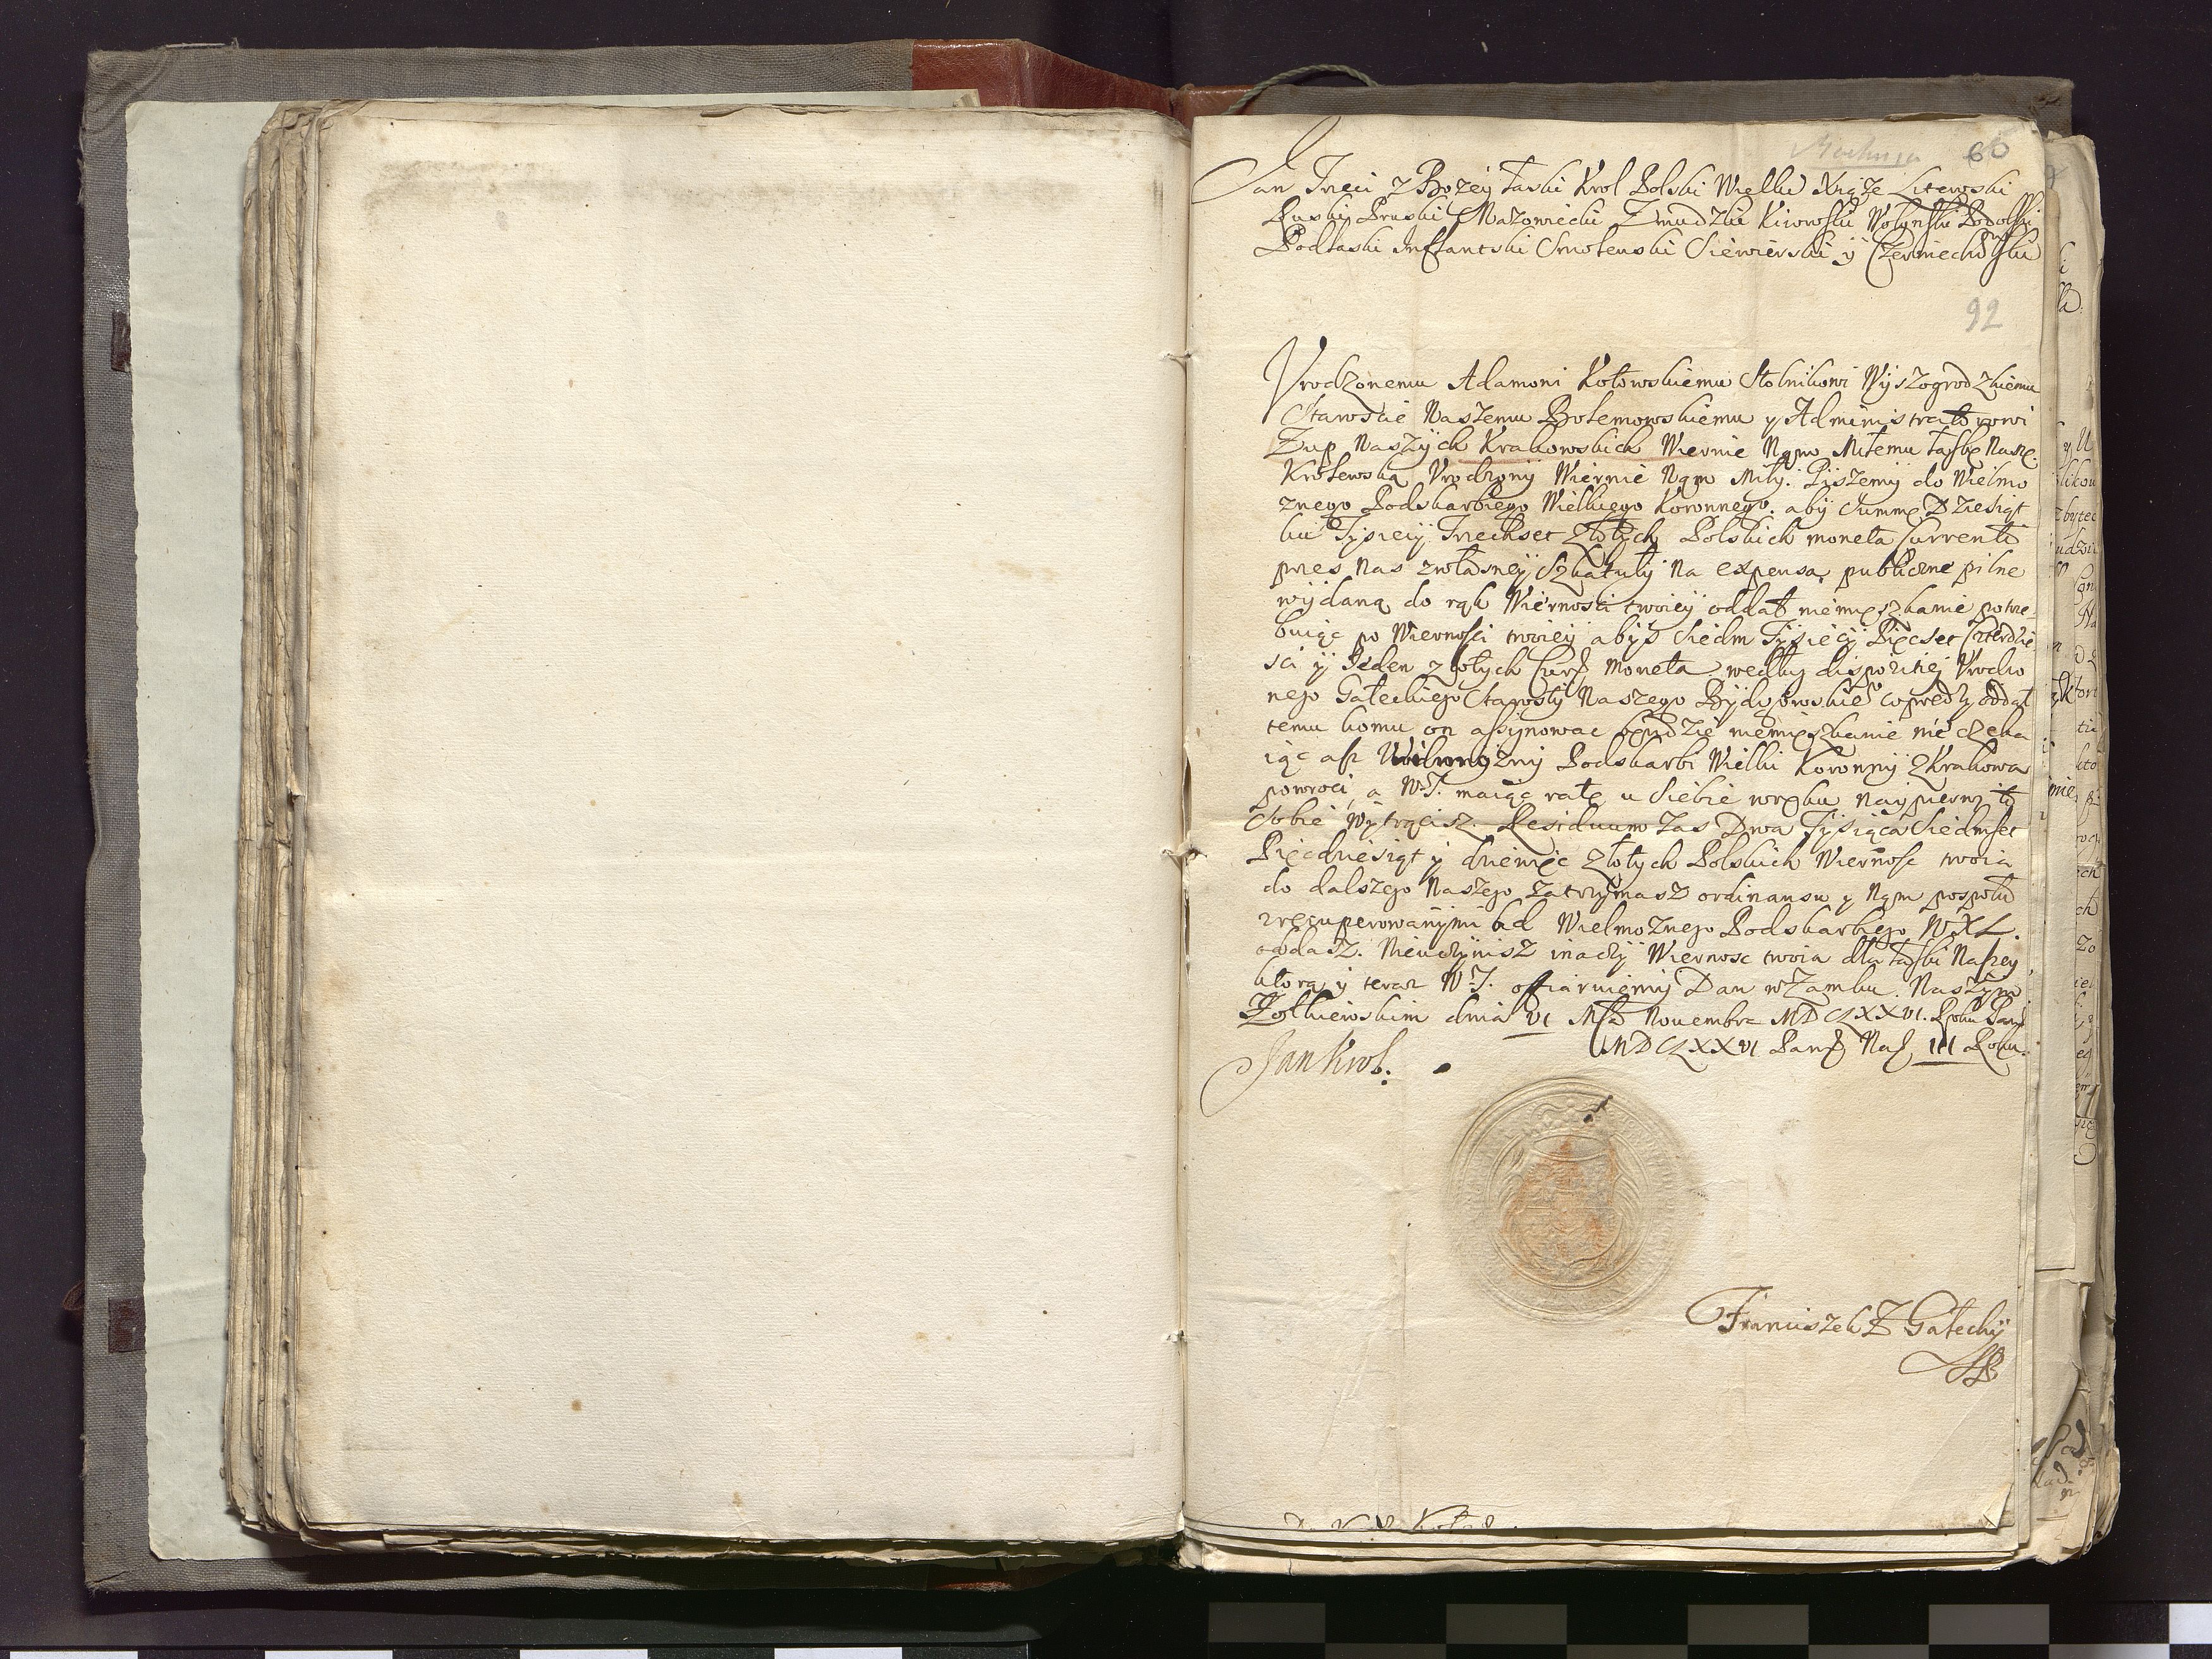 60
Jan Trzeci z Bozey Łaski Krol Polski Wielki Xiąże Litewski
Ruski Pruski Mazowiecki Zmudzki Kiiowski Wołynski Podolski
Podlaski Inflantski Smolenski Siewierski y Czerniechowski
92
Vrodzonemu Adamowi Kotowskiemu Stolnikowi Wyszogrodzkiemu
Staroscie Naszemu Bolemowskiemu y Administratorowi
Zup Naszych Krakowskich Wiernie Nąm Miłemu łaskę Naszę
Krolewską Vrodzony Wiernie Nąm Miły. Piszemy do Wielmo
znego Podskarbiego Wielkiego Koronnego. aby Summę Dziesiąt
ku Tysięcy Trzechset Złotych Polskich moneta currenti
przes Nas zwłasney Szkatuły na expensa publiczne pilne
wydaną do rąk Wiernosci twoiey oddał niemięszkanie potrze
buiąc po Wiernosci twoiey abyś Siedm Tysięcy Pięcset Czterdzie
sci y Jeden złotych Curr moneta według dispozitiey Vrodzo
nego Gałeckiego Starosty Naszego Bydgowskie° coprędzy oddał
temu komu on assynowac będzie niemięszkanie nie czeka
iąc asz Wielmozny Podskarbi Wielki Koronny z Krakowa
powroci, a W.T. maiąc ratę u Siebie wręku naypierwy tę
Sobie wytrącisz. Residuum zas Dwa Tysiąca Siedmset
Pięcdziesiąt y dziewięc złotych Polskich Wiernosc twoia
do dalszego Naszego zatrzymasz ordinansu y Nąm pospołu
zrecuperowanymi od Wielmoznego Podskarbiego W.X.L.
oddasz. Nieuczynisz inaczy Wiernosc twoia dla łaski Naszey
ktorą y teraz W.T. offiaruiemy Dan w Zamku Naszym
Zołkiewskim dnia VI Msca Novembra MDCLXXVI. Roku Pans
MDCLXXVI Panow Nas III Roku.
Jan Krol.
Franciszek Z Gałecky